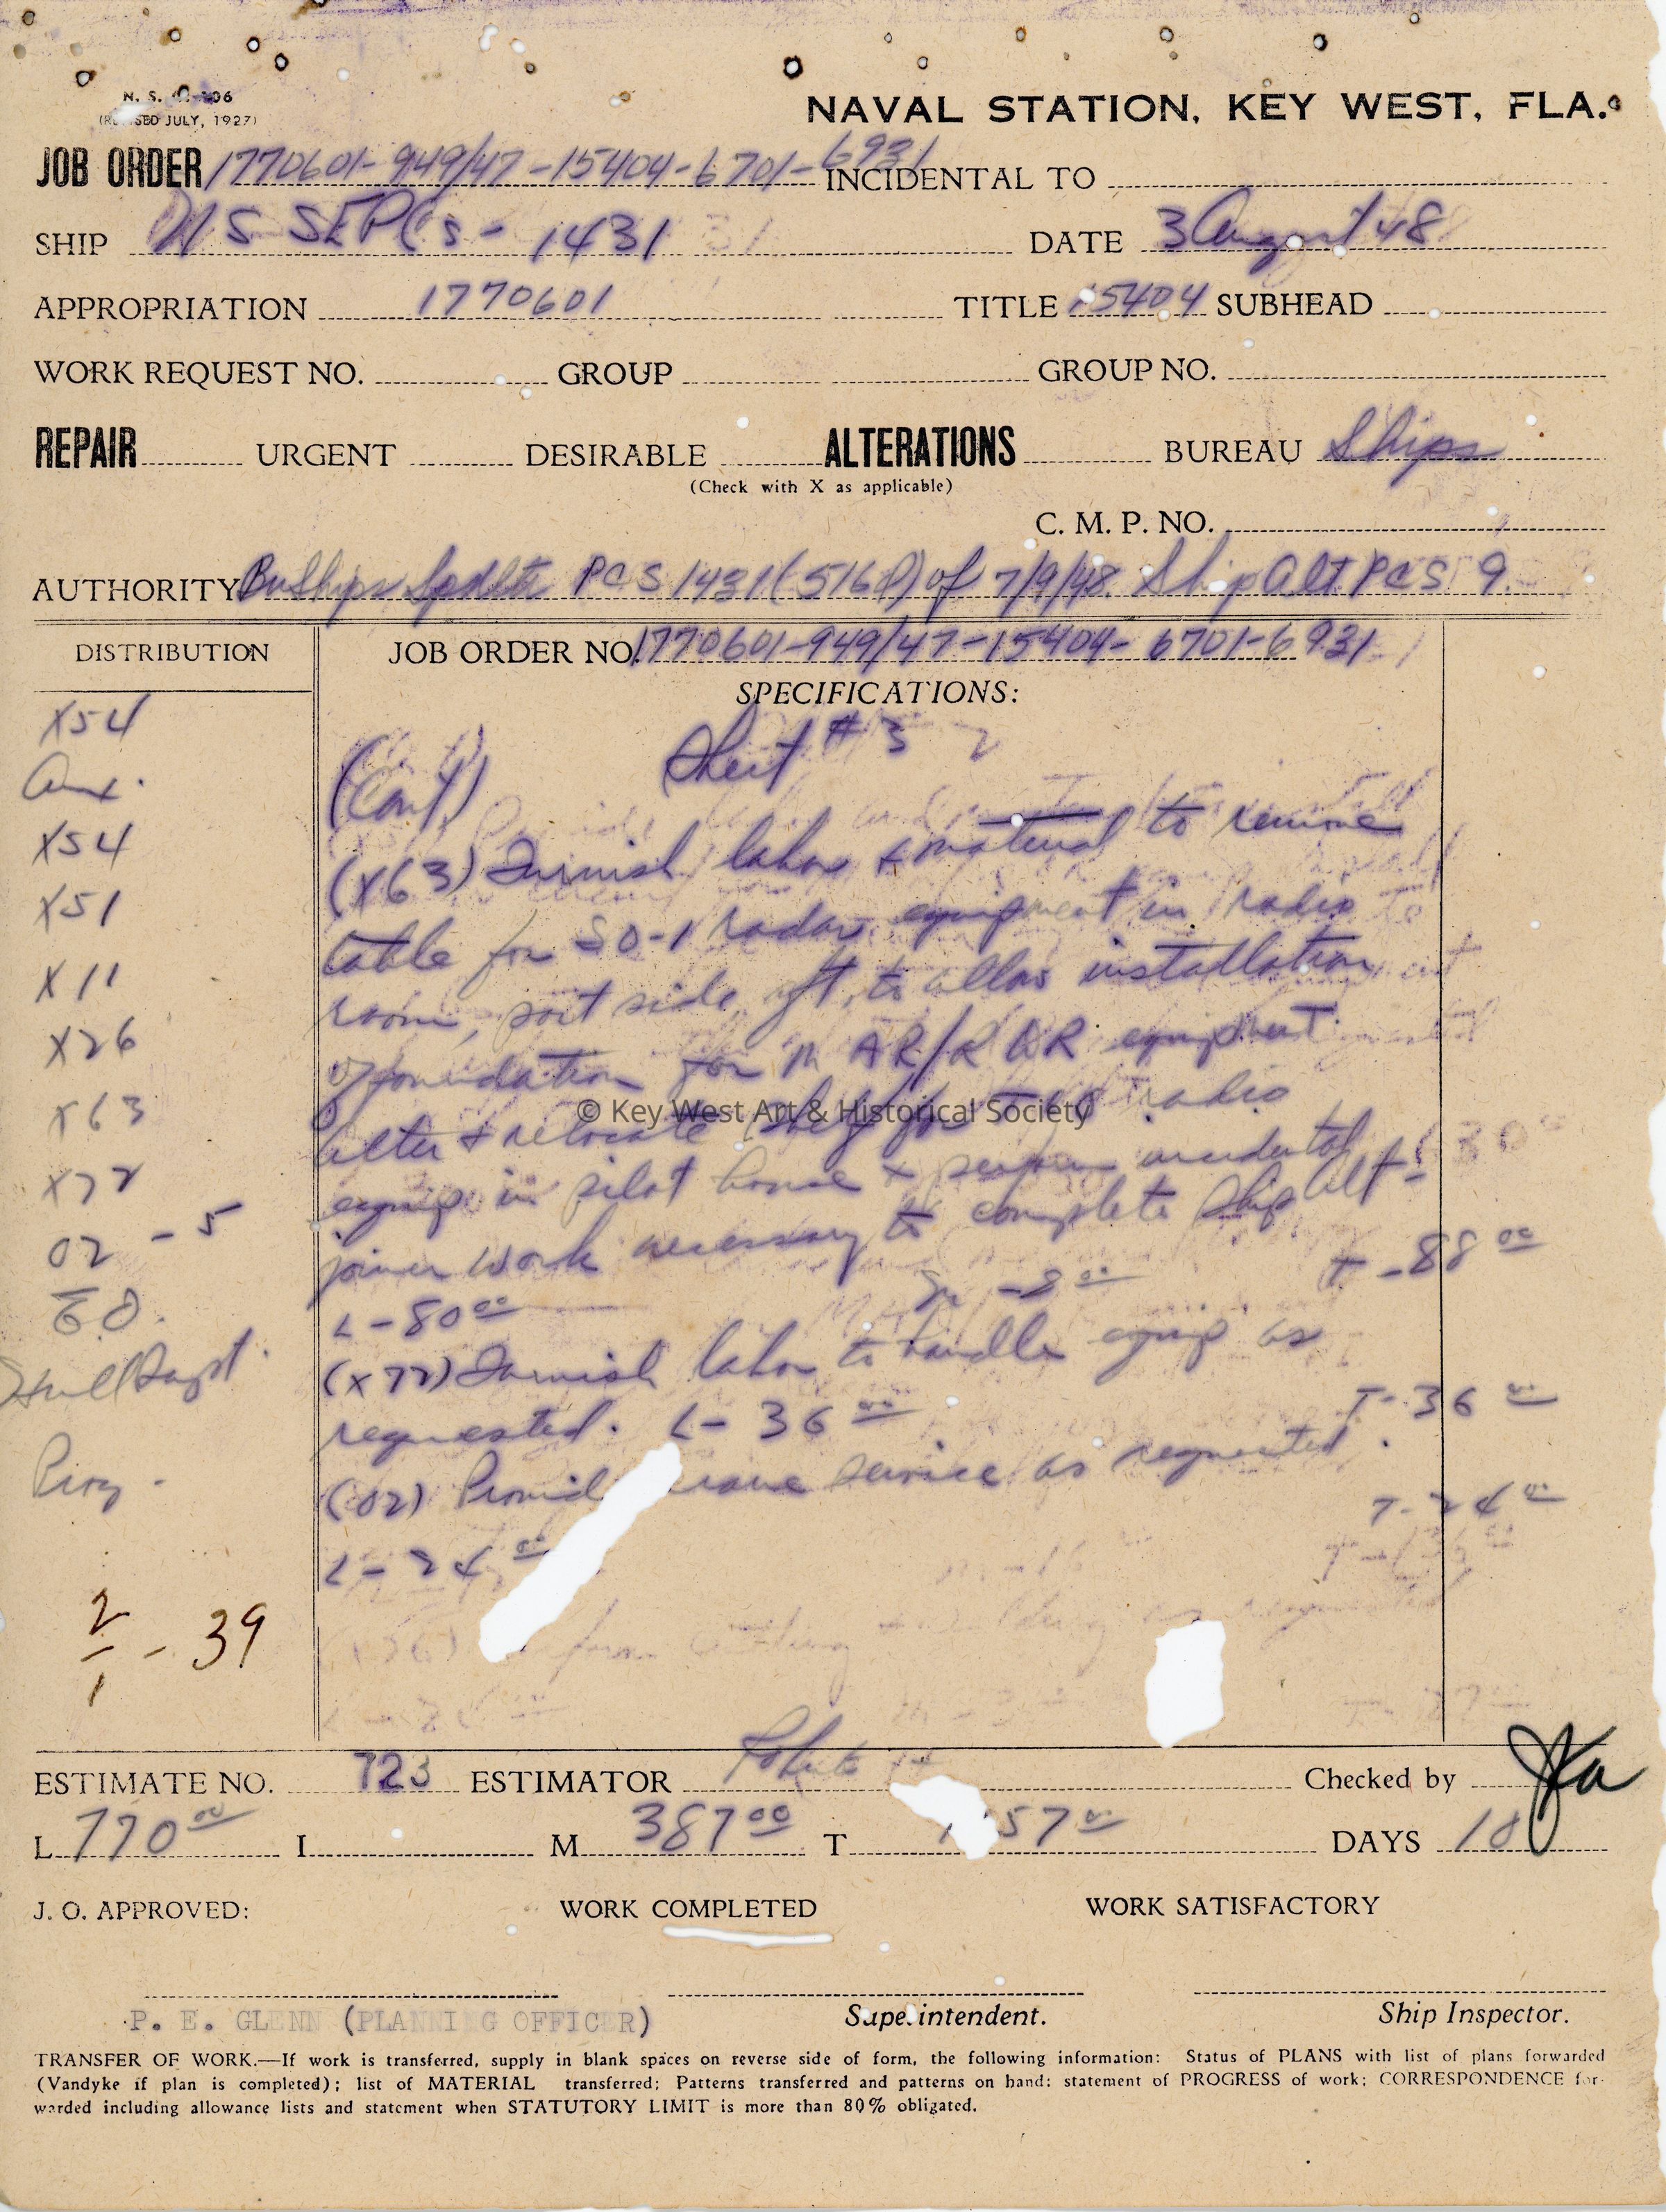 (REVISED JULY, 1927)
NAVAL STATION, KEY WEST, FLA.
JOB ORDER 1770601-949/47-15404-6701-6931 INCIDENTAL TO
SHIP PCS - 1431 DATE 3 August 48
APPROPRIATION 1770601 TITLE 15404 SUBHEAD
WORK REQUEST NO. GROUP GROUP NO.
REPAIR URGENT DESIRABLE ALTERATIONS BUREAU Ships
(Check with X as applicable)
C. M. P. NO.
AUTHORITY BuShips PCS 1431 of 7/9/48. Ship Alt PCS 9.
DISTRIBUTION
X54
Aux.
X54
X51
X11
X26
X63
X72
02 - 5
E.O.
Hull Supt.
2/1 - 39
JOB ORDER NO. 1770601-949/47-15404-6701-6931
SPECIFICATIONS:
(Cont) Sheet #3
(X63) Furnish labor & material to remove
table for SO-1 radar equipment in radio
room, port side, aft, to allow installation
of foundation for MAR/RDR equipment.
Alter & relocate shelf for radio
equip in pilot house & perform incidental
joiner work necessary to complete Ship Alt-
L-80 00 -8 00 T-88 00
(X72) Furnish labor to handle equip as
requested. L-36 00 T-36 00
(02) service as requested.
L-24 00 T-24 00
© Key West Art & Historical Society
ESTIMATE NO. 723 ESTIMATOR Checked by
L 770 00 I M 387 00 T 57 00 DAYS 10
J. O. APPROVED: WORK COMPLETED WORK SATISFACTORY
P. E. GLENN (PLANNING OFFICER) Superintendent. Ship Inspector.
TRANSFER OF WORK.—If work is transferred, supply in blank spaces on reverse side of form, the following information: Status of PLANS with list of plans forwarded
(Vandyke if plan is completed); list of MATERIAL transferred; Patterns transferred and patterns on hand; statement of PROGRESS of work; CORRESPONDENCE for-
warded including allowance lists and statement when STATUTORY LIMIT is more than 80% obligated.